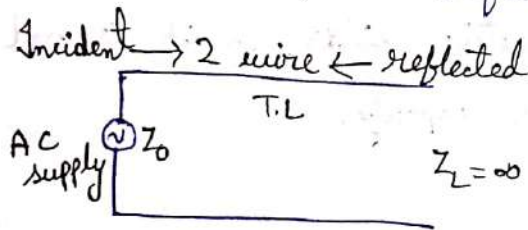 Incident → 2 wire ← reflected
T.L
AC supply
Z₀
Z_L = ∞